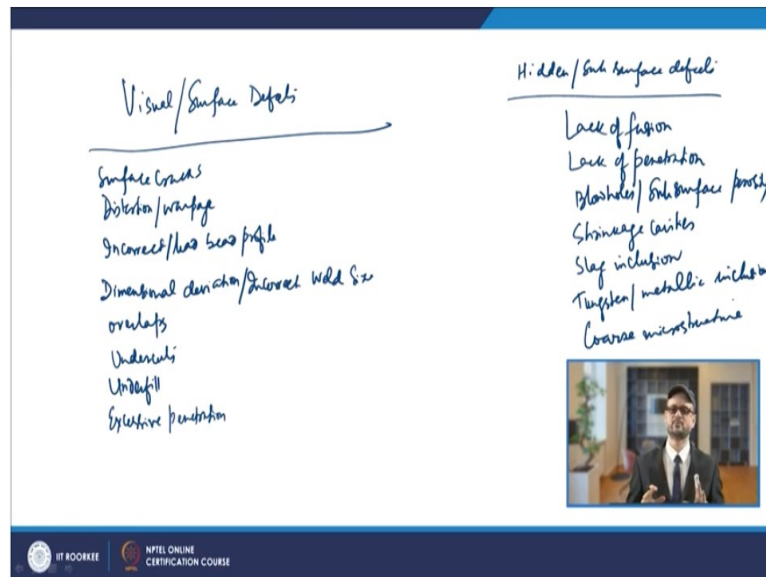 Visual/Surface Defects
Surface Cracks
Distortion/warpage
Incorrect/bad bead profile
Dimensional deviation/Incorrect Weld Size
overlaps
Undercuts
Underfill
Excessive penetration
Hidden/Sub surface defects
Lack of fusion
Lack of penetration
Blowholes/Subsurface porosity
Shrinkage cavities
Slag inclusion
Tungsten/metallic inclusion
Coarse microstructure
IIT ROORKEE
NPTEL ONLINE
CERTIFICATION COURSE